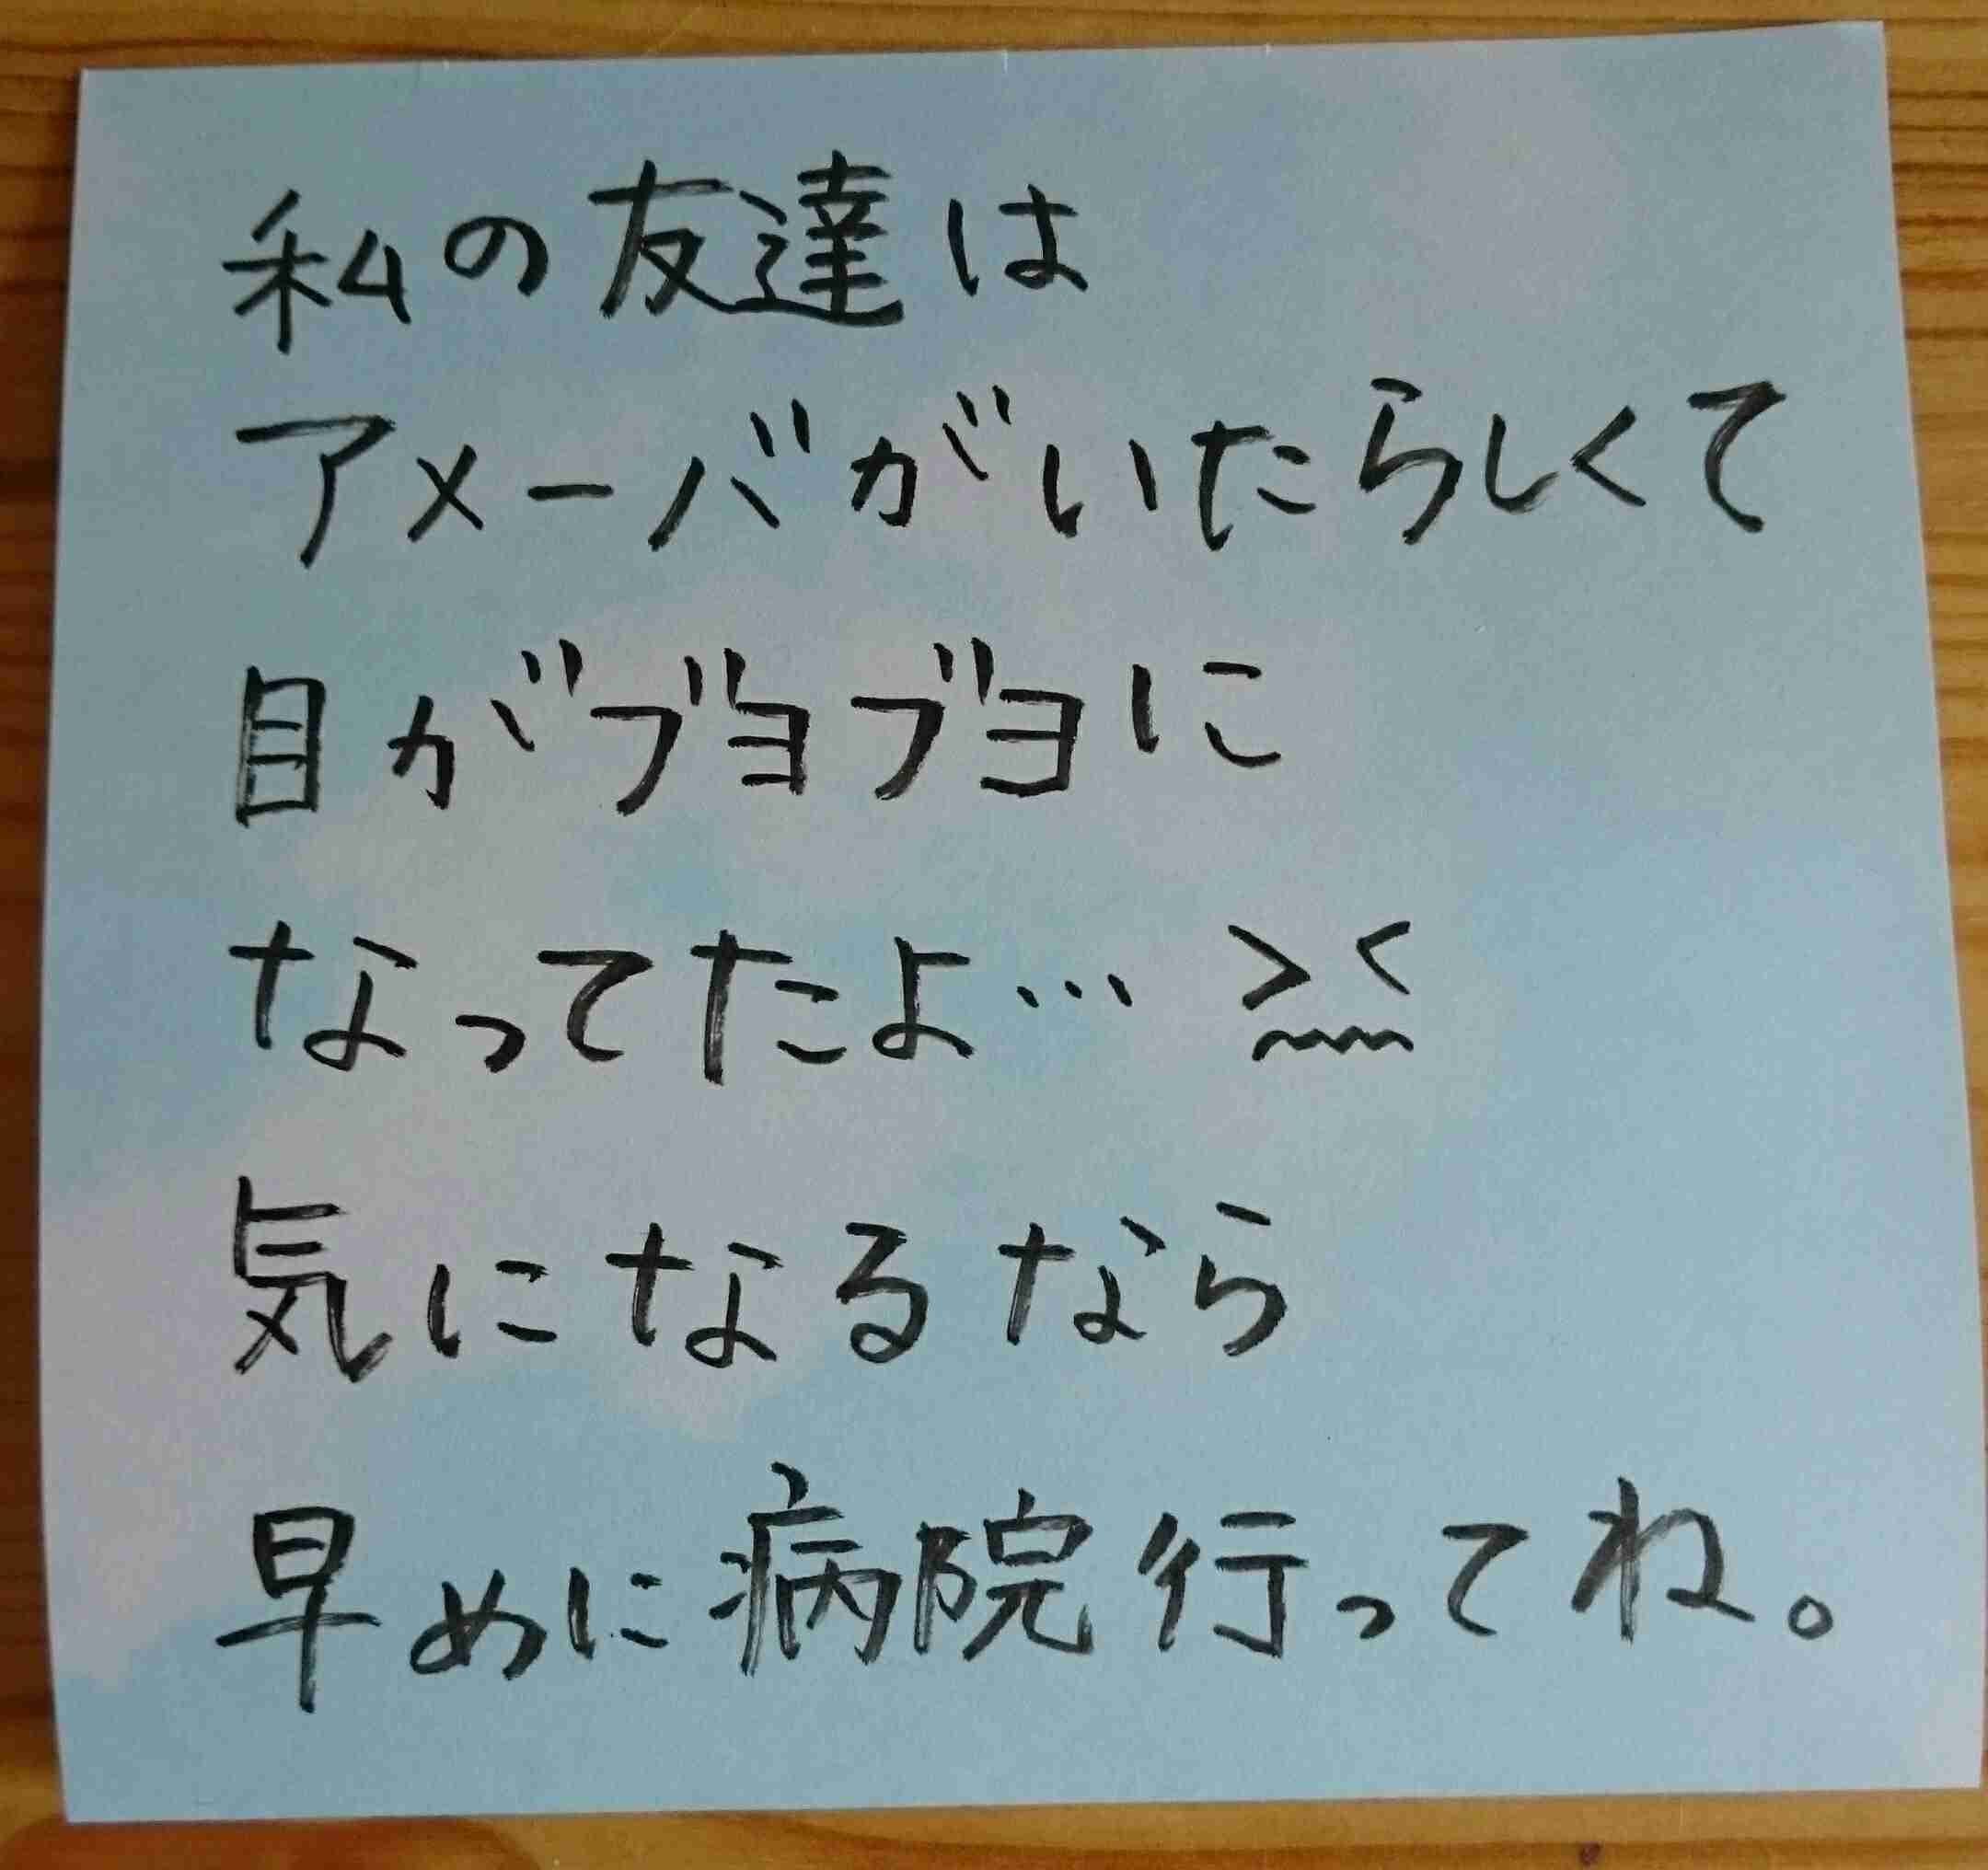 私の友達は
アメーバがいたらしくて
目がブヨブヨに
なってたよ… >﹏<
気になるなら
早めに病院行ってね。